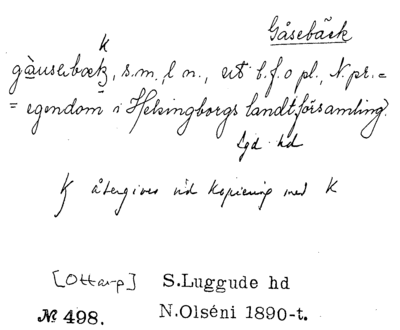 Gåsebäck
k
gàusebœkʒ, s.m., l n., ut b.f. o pl., N.pr.=
= egendom i Helsingborgs landtförsamling.
Lgd hd
ʒ återgives vid kopiering med k
[Ottarp] S.Luggude hd
№ 498. N.Olséni 1890-t.